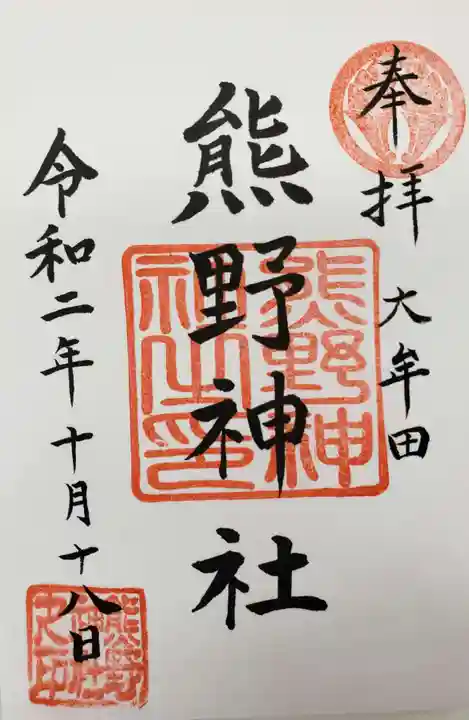 奉拝 大牟田
熊野神社
熊野神
社之印
令和二年十月十八日